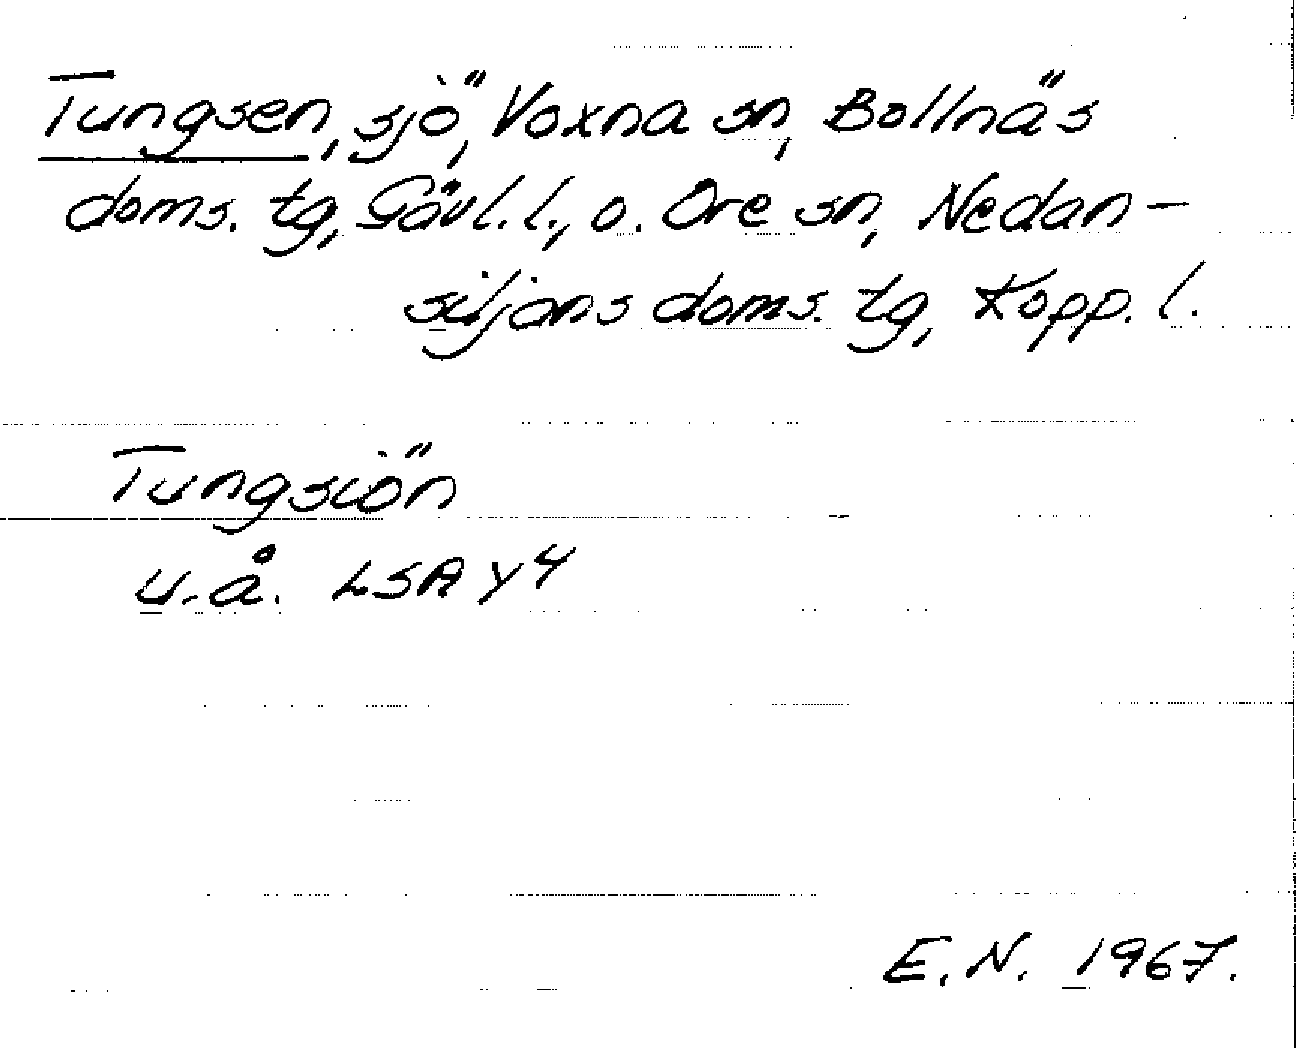 Tungsen, sjö, Voxna sn, Bollnäs
doms. tg, Gävl. l., o. Ore sn, Nedan-
siljans doms. tg, Kopp. l.
Tungsiön
u.å. LSA Y4
E.N. 1967.